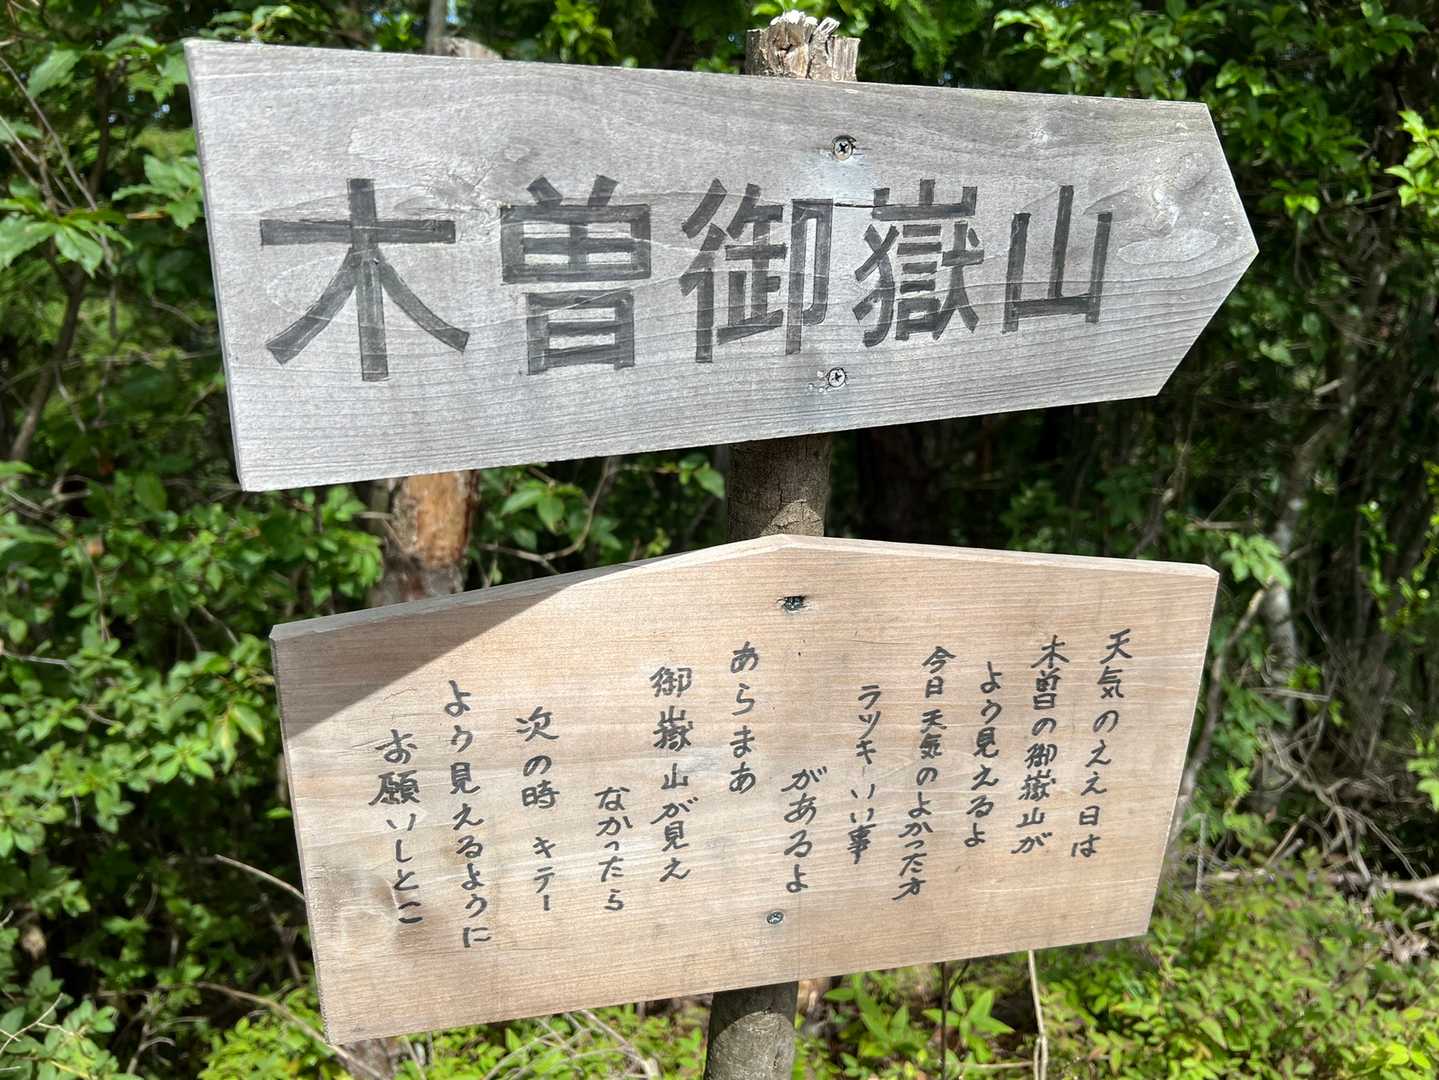 木曽御嶽山
天気のええ日は
木曽の御嶽山が
よう見えるよ
今日天気のよかった方
ラツキーいい事
があるよ
あらまあ
御嶽山が見え
なかったら
次の時 キテー
よう見えるように
お願いしとこ